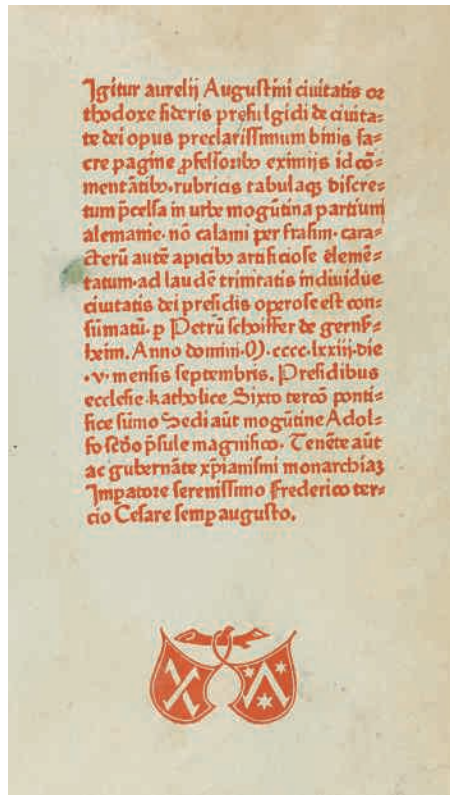 Igitur aurelij Augustini ciuitatis or
thodoxe sideris prefulgidi de ciuita=
te dei opus preclarissimum binis sa=
cre pagine ꝓfessoribꝰ eximijs id cō=
mentātibꝰ. rubricis tabulaqꝫ discre=
tum p̄celsa in urbe mogūtina partium
alemanie. nō calami per frasim. cara=
cterū autē apicibꝰ artificiose elemē=
tatum. ad laudē trinitatis indiuidue
ciuitatis dei presidis operose est con=
sūmatū. ꝑ Petrū schoiffer de gernſz=
heim. Anno domini. M. cccc. lxxiij. die
.v. mensis septembris. Presidibus
ecclesie katholice Sixto tercō ponti=
fice sūmo Sedi aūt mogūtine Adol=
fo secūdo p̄sule magnifico. Tenēte aūt
ac gubernāte xp̄ianismi monarchiaꝫ
Impatore serenissimo Frederico ter=
cio Cesare semꝑ augusto.